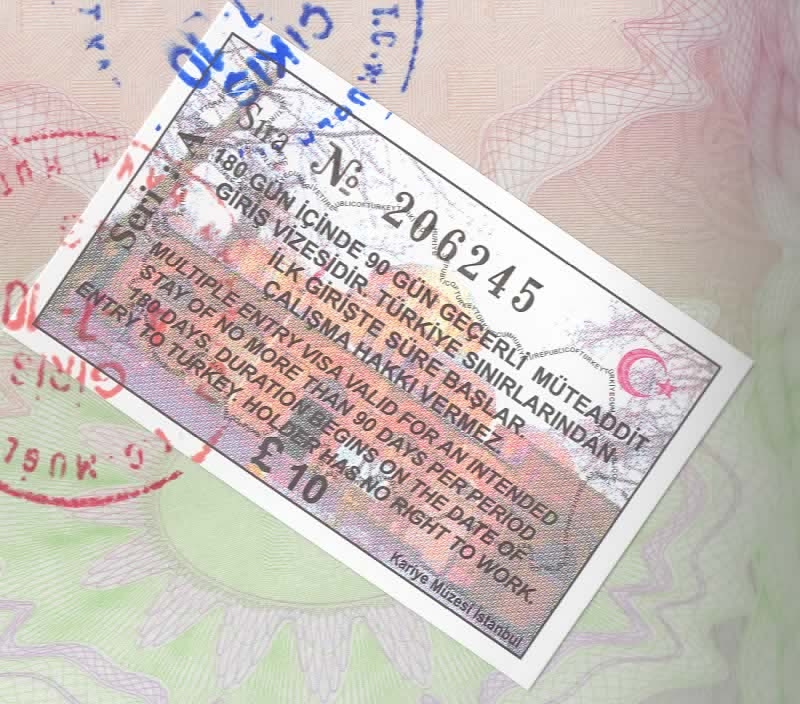 Seri : A
Sıra № 206245
180 GÜN İÇİNDE 90 GÜN GEÇERLİ MÜTEADDİT
GİRİŞ VİZESİDİR. TÜRKİYE SINIRLARINDAN
İLK GİRİŞTE SÜRE BAŞLAR.
ÇALIŞMA HAKKI VERMEZ.
MULTIPLE ENTRY VISA VALID FOR AN INTENDED
STAY OF NO MORE THAN 90 DAYS PER PERIOD
180 DAYS, DURATION BEGINS ON THE DATE OF
ENTRY TO TURKEY. HOLDER HAS NO RIGHT TO WORK.
£ 10
Kariye Müzesi İstanbul
GİRİŞ
T.C. MUĞL
T.C.